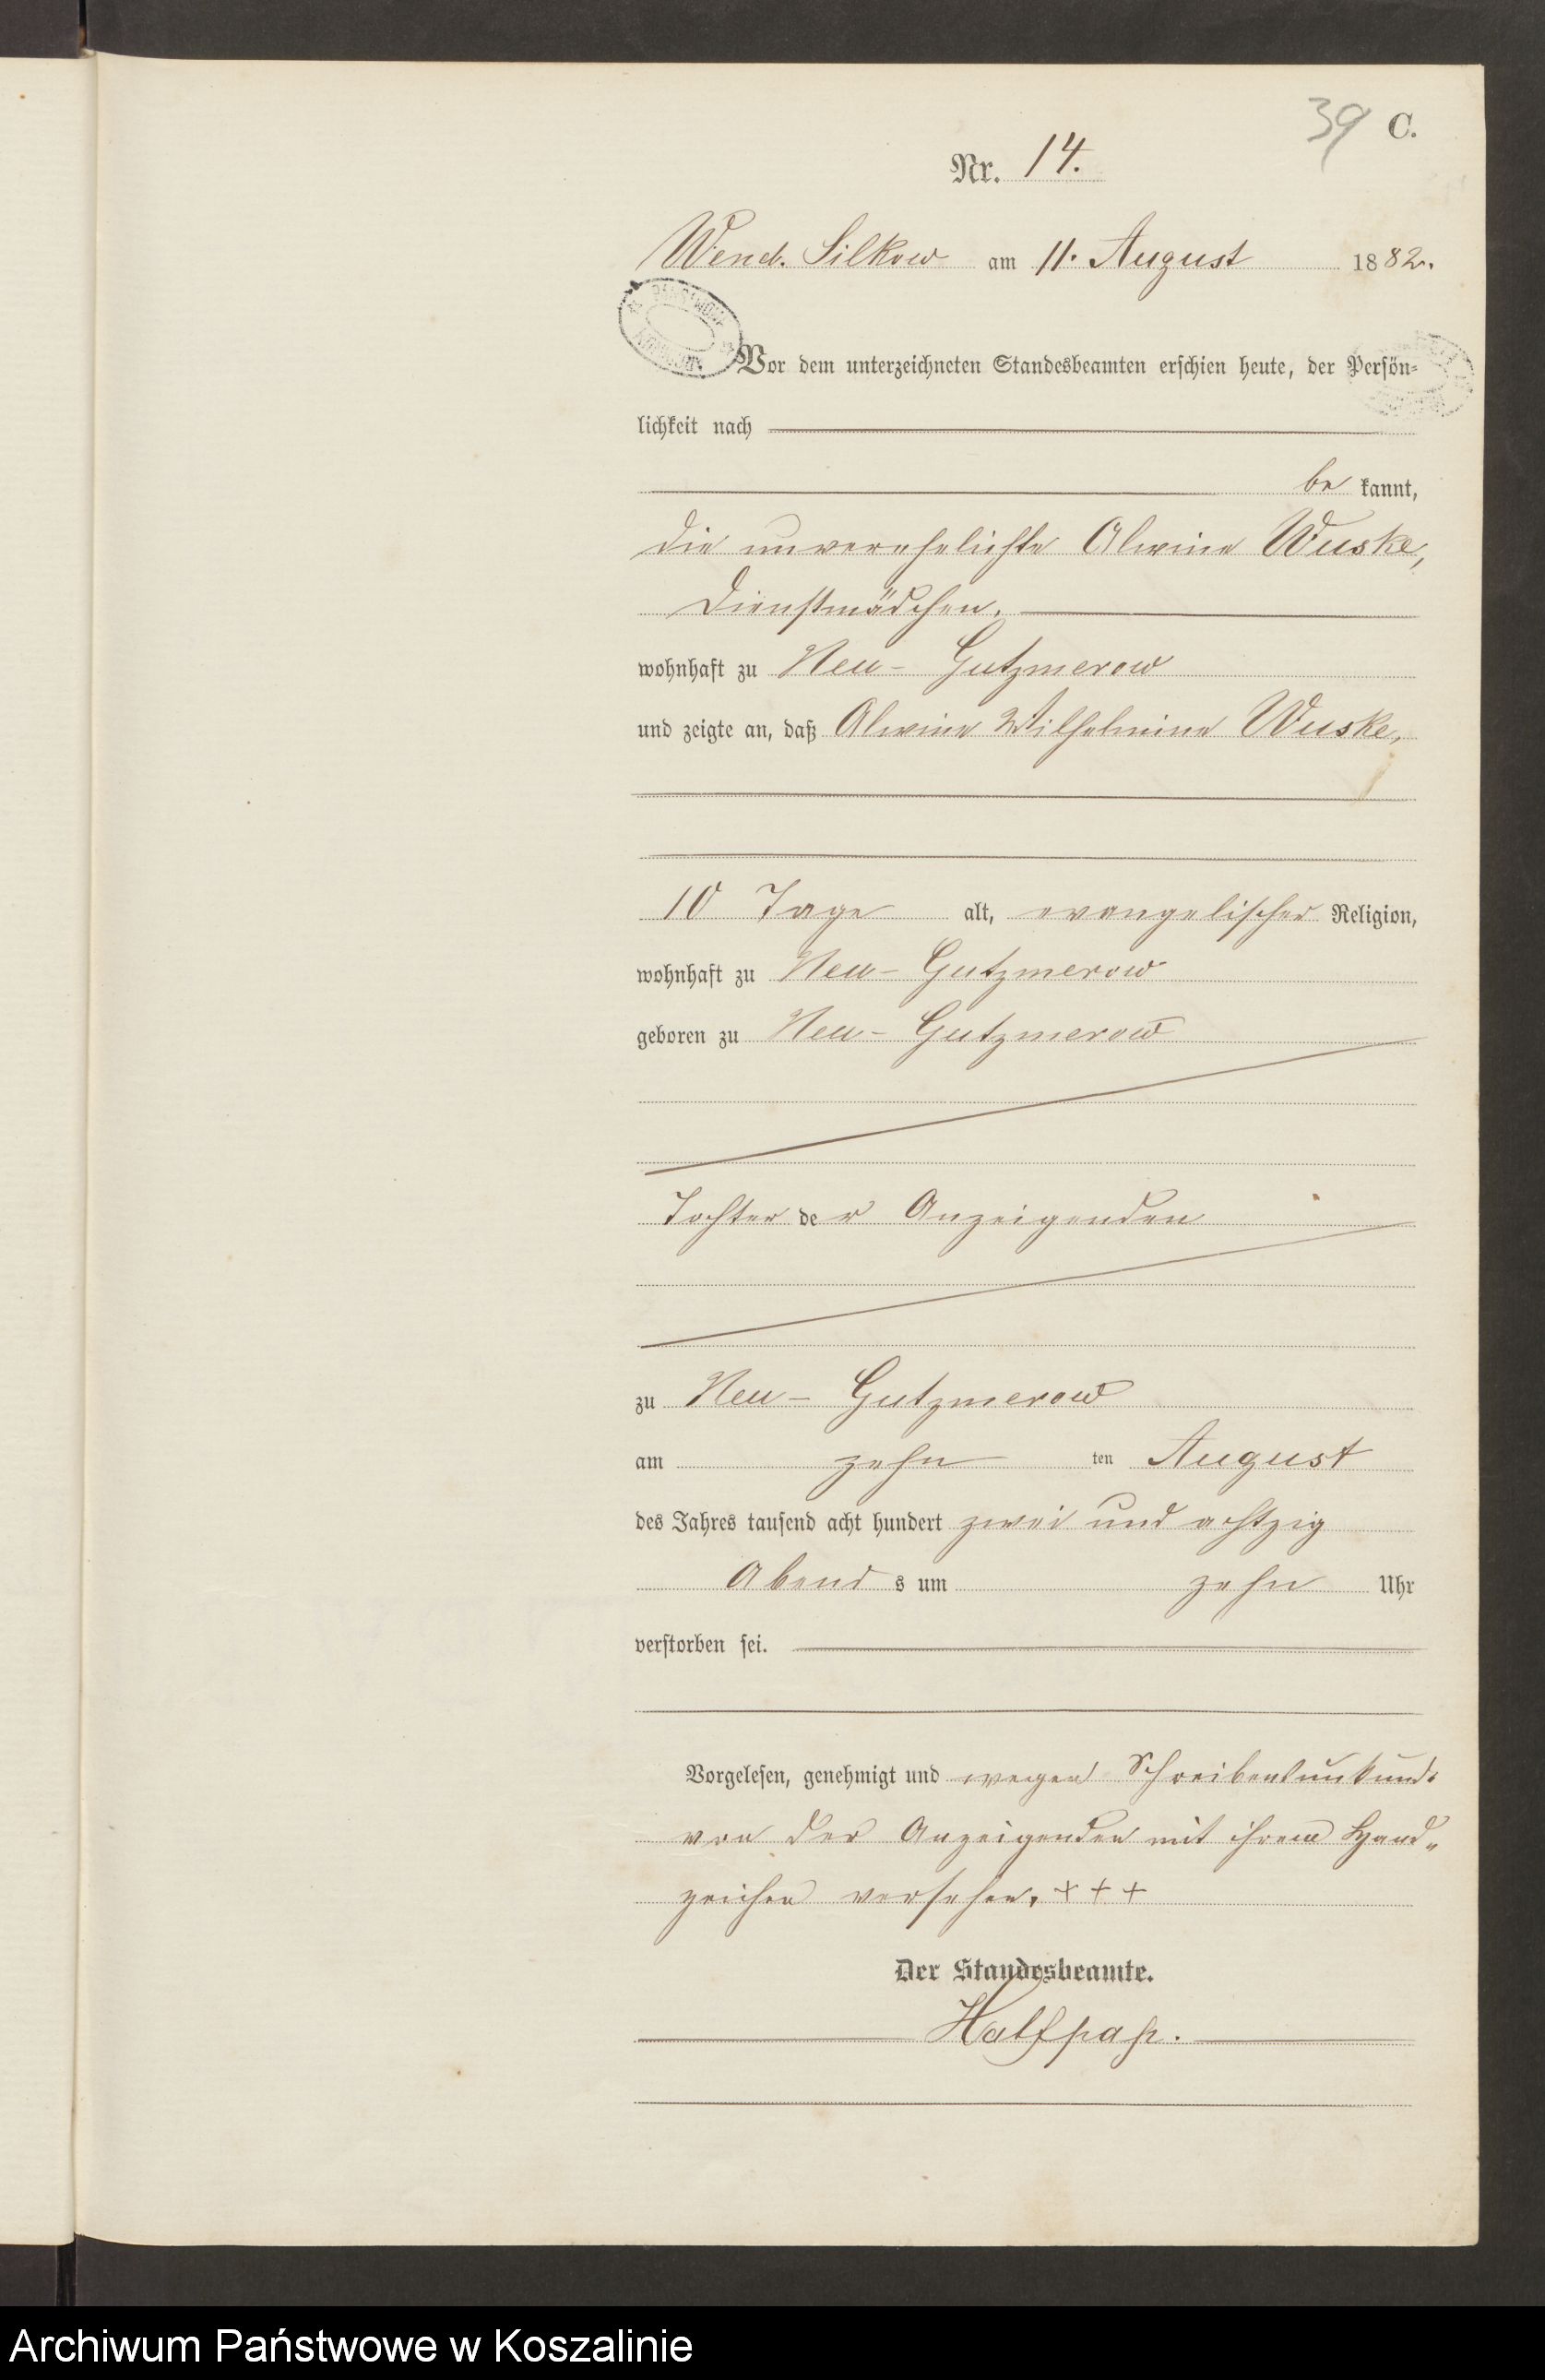 39 C.
Nr. 14.
Wend. Silkow am 11. August 1882.
Vor dem unterzeichneten Standesbeamten erschien heute, der Persön-
lichkeit nach
be kannt,
die unverehelichte Alwine Wuske,
Dienstmädchen,
wohnhaft zu Neu- Gutzmerow
und zeigte an, daß Alwine Wilhelmine Wuske,
10 Tage alt, evangelischer Religion,
wohnhaft zu Neu- Gutzmerow
geboren zu Neu- Gutzmerow
Tochter der Anzeigenden
zu Neu- Gutzmerow
am zehn ten August
des Jahres tausend acht hundert zwei und achtzig
Abend s um zehn Uhr
verstorben sei.
Vorgelesen, genehmigt und wegen
von der Anzeigenden mit ihrem Hand„
zeichen versehen. + + +
Der Standesbeamte.
Halfpap.
Archiwum Państwowe w Koszalinie